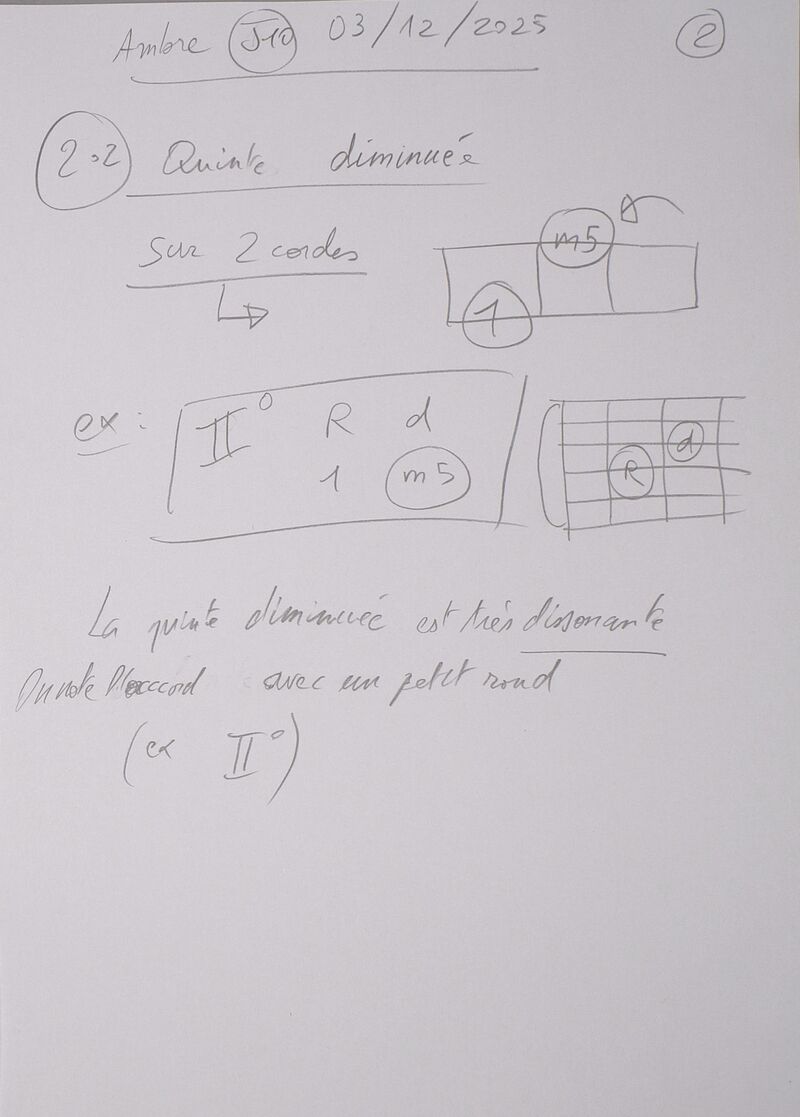 Ambre J10 03/12/2025 2
2.2 Quinte diminuée
Sur 2 cordes
m5
1
ex : II° R d
1 m5
d
R
La quinte diminuée est très dissonante
On note l'accord avec un petit rond
(ex II°)